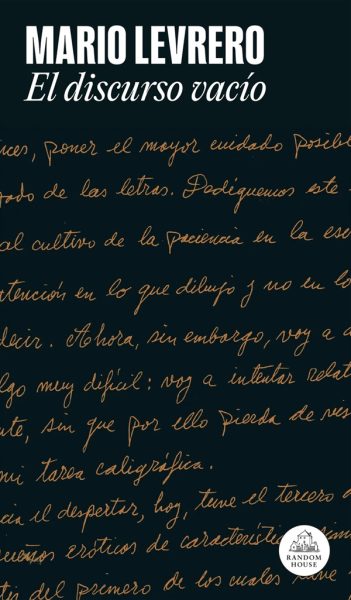 MARIO LEVRERO
El discurso vacío
nces, poner el mayor cuidado posibl
zado de las letras. Dediquemos este
al cultivo de la paciencia en la esc
atención en lo que dibujo y no en lo
decir. Ahora, sin embargo, voy a a
lgo muy difícil: voy a intentar relat
nte, sin que por ello pierda de vis
mi tarea caligráfica.
cia el despertar, hoy, tuve el tercero d
sueños eróticos de características
tes del primero de los cuales tuve
RANDOM
HOUSE